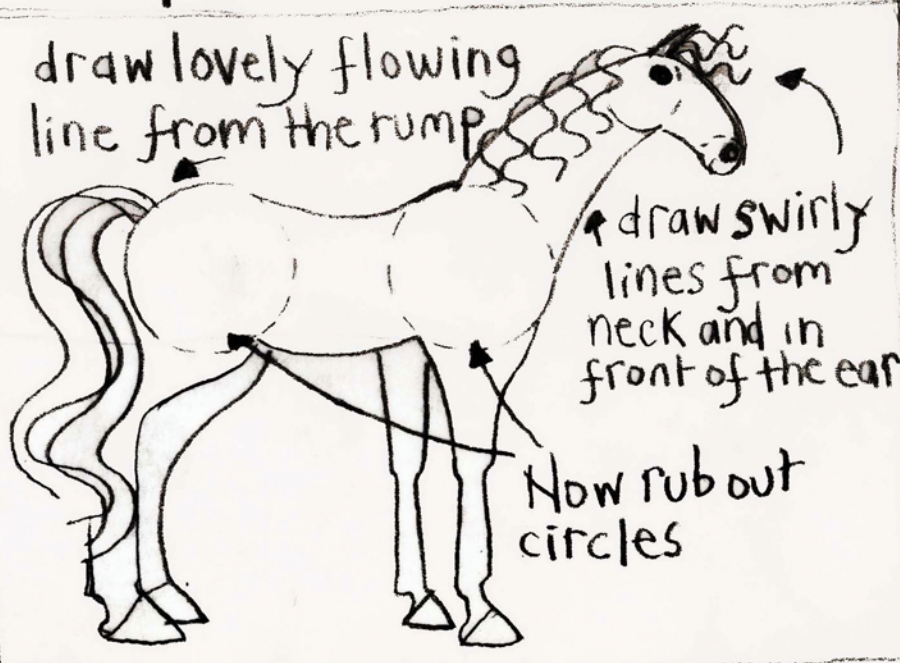 draw lovely flowing
line from the rump
draw swirly
lines from
neck and in
front of the ear
Now rub out
circles